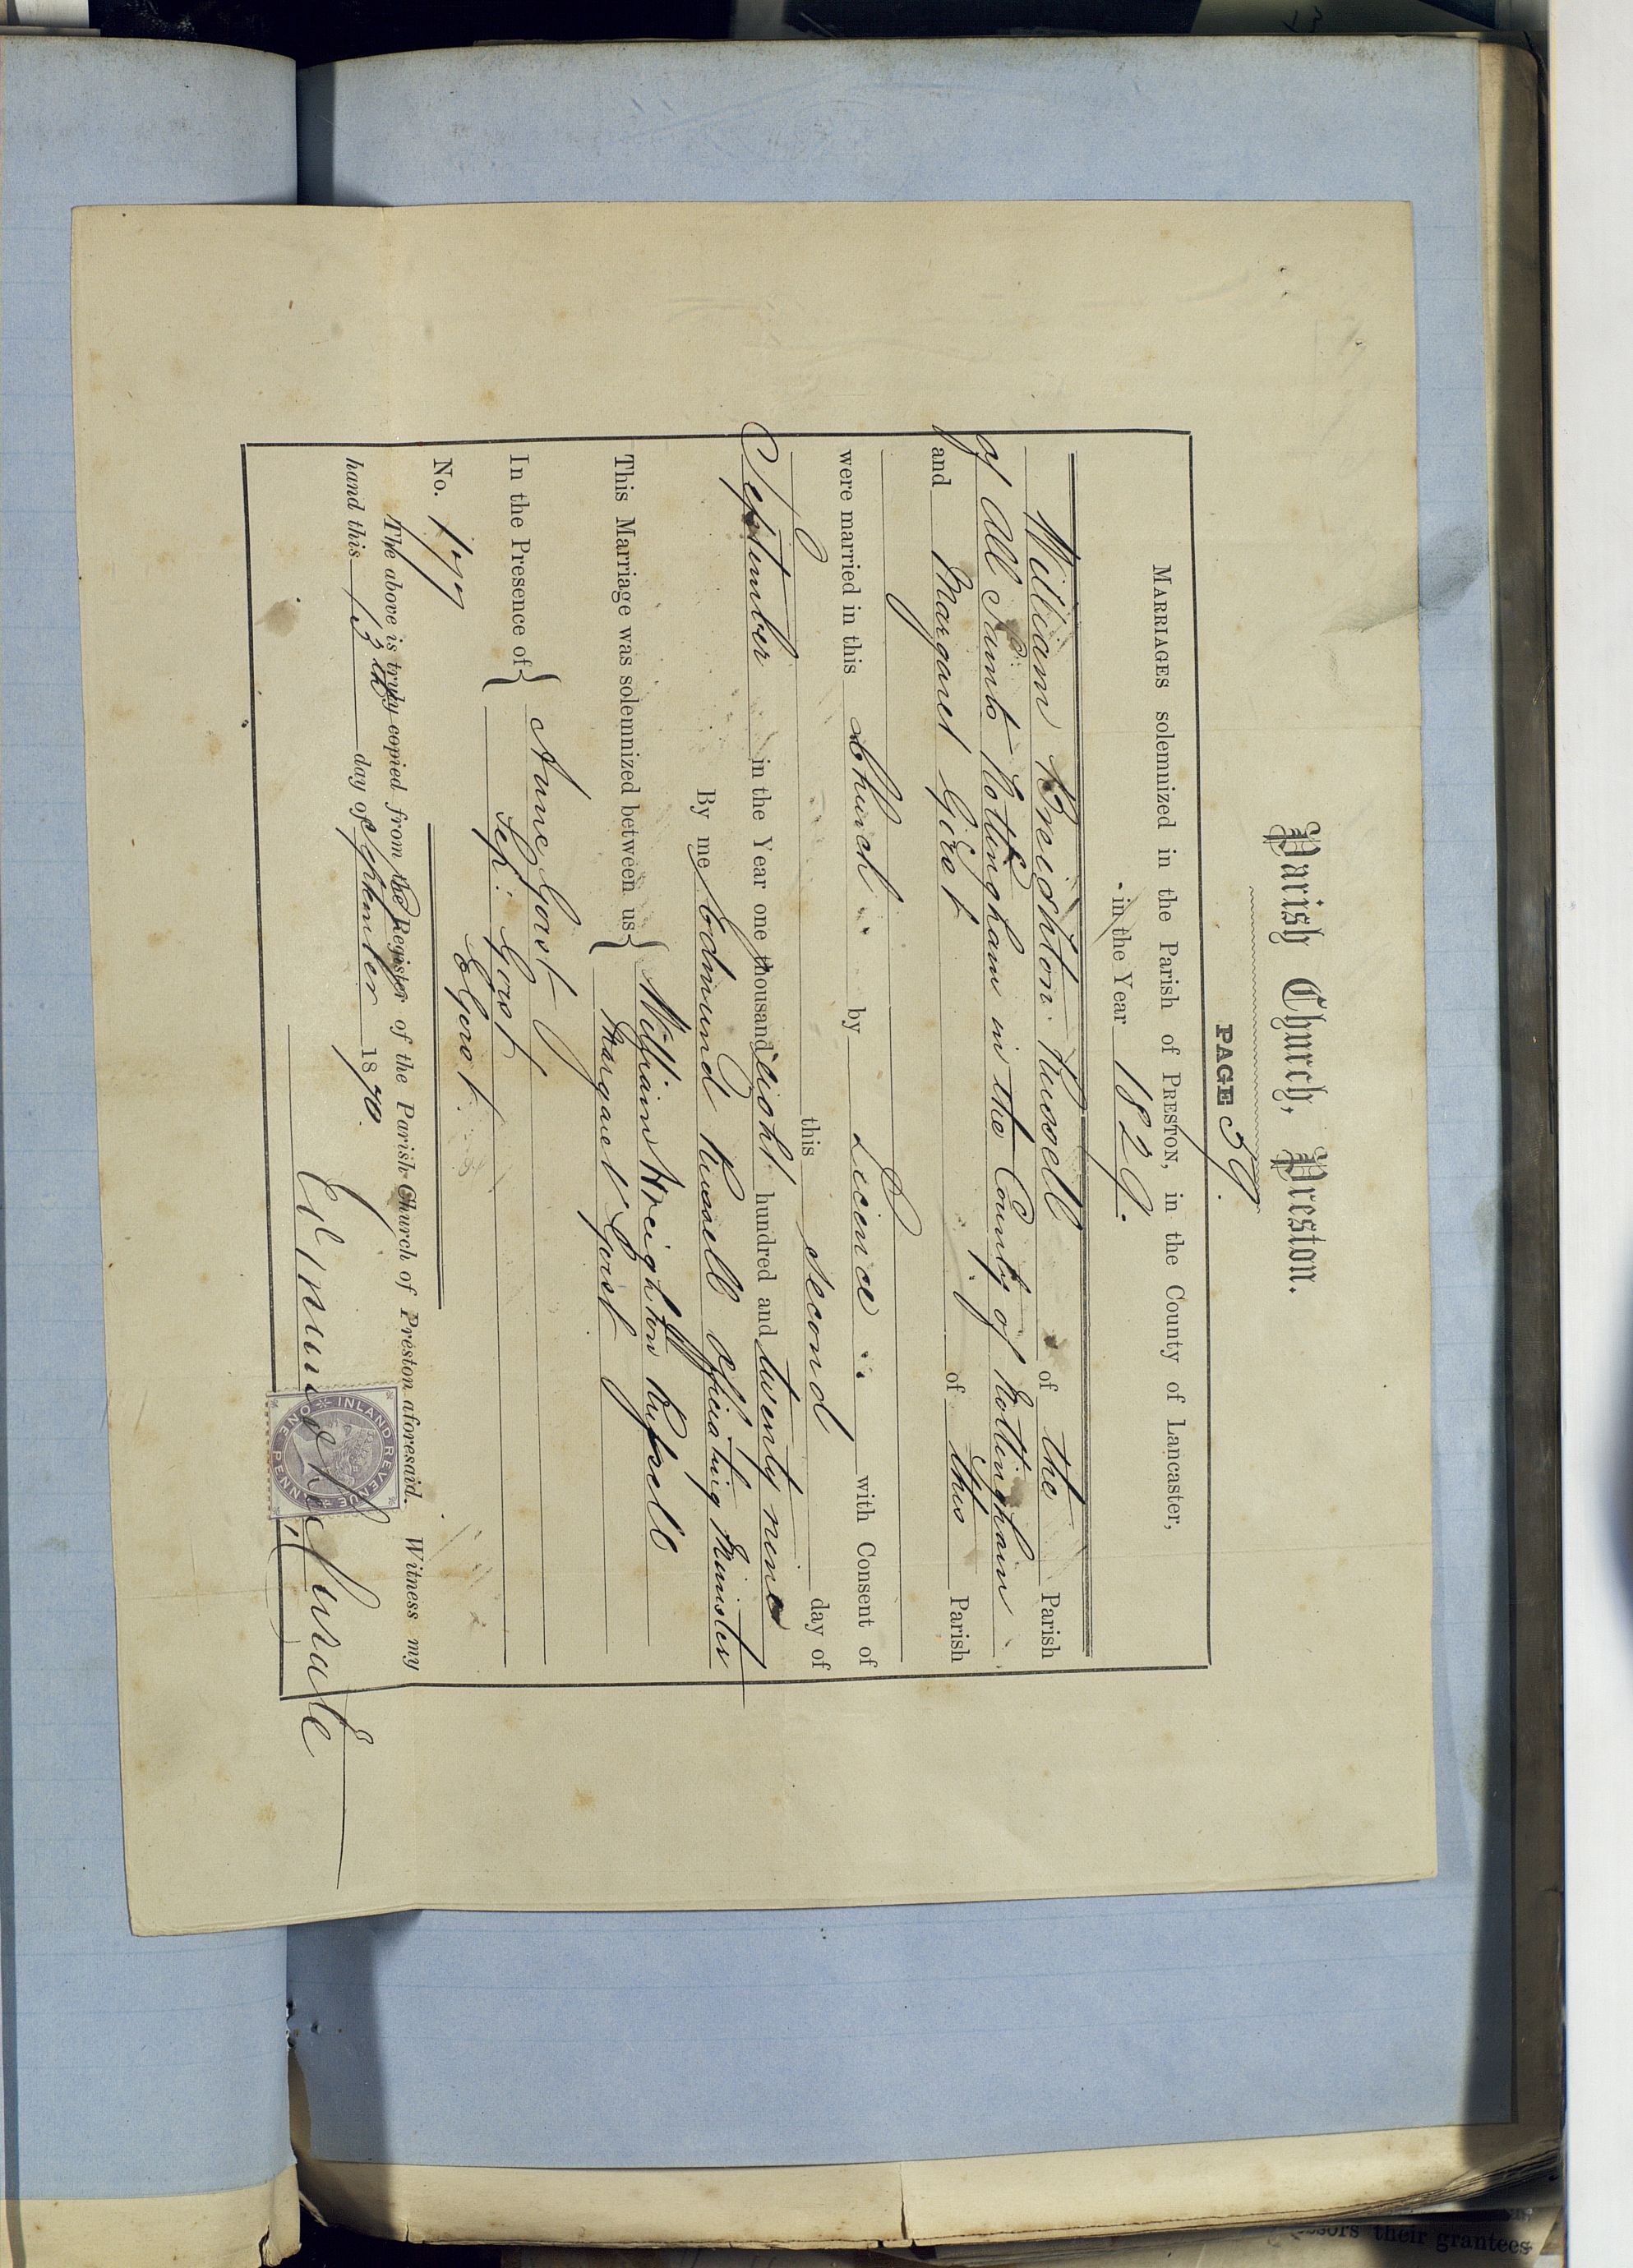 Parish Church, Preston.
PAGE 59.
MARRIAGES solemnized in the Parish of PRESTON, in the County of Lancaster,
in the Year 1829.
William Breighton Russell of the Parish
of All Saints Nottingham in the County of Nottingham
and Margaret Gorst of this Parish
were married in this Church by Licence with Consent of
this second day of
September in the Year one thousand eight hundred and twenty nine
By me Edmund Russell officiating Minister
This Marriage was solemnized between us { William Breighton Russell
Margaret Gorst
In the Presence of { Anne Gorst
Sep: Gorst
E Gorst.
No. 177
The above is truly copied from the Register of the Parish Church of Preston aforesaid. Witness my
hand this 13th day of September 1870.
INLAND REVENUE
ONE PENNY
sors their grantees